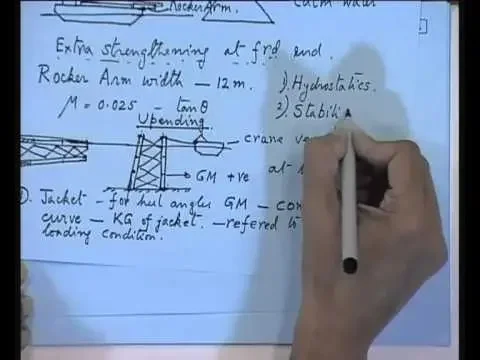 Rocker Arm. Calm water
Extra strengthening at frd end.
Rocker Arm width — 12m. 1). Hydrostatics.
μ = 0.025 - tanθ 2). Stabili
Upending
crane ve
GM +ve at
Jacket - for heel angles GM -
curve - KG of jacket. - refered to
loading condition.